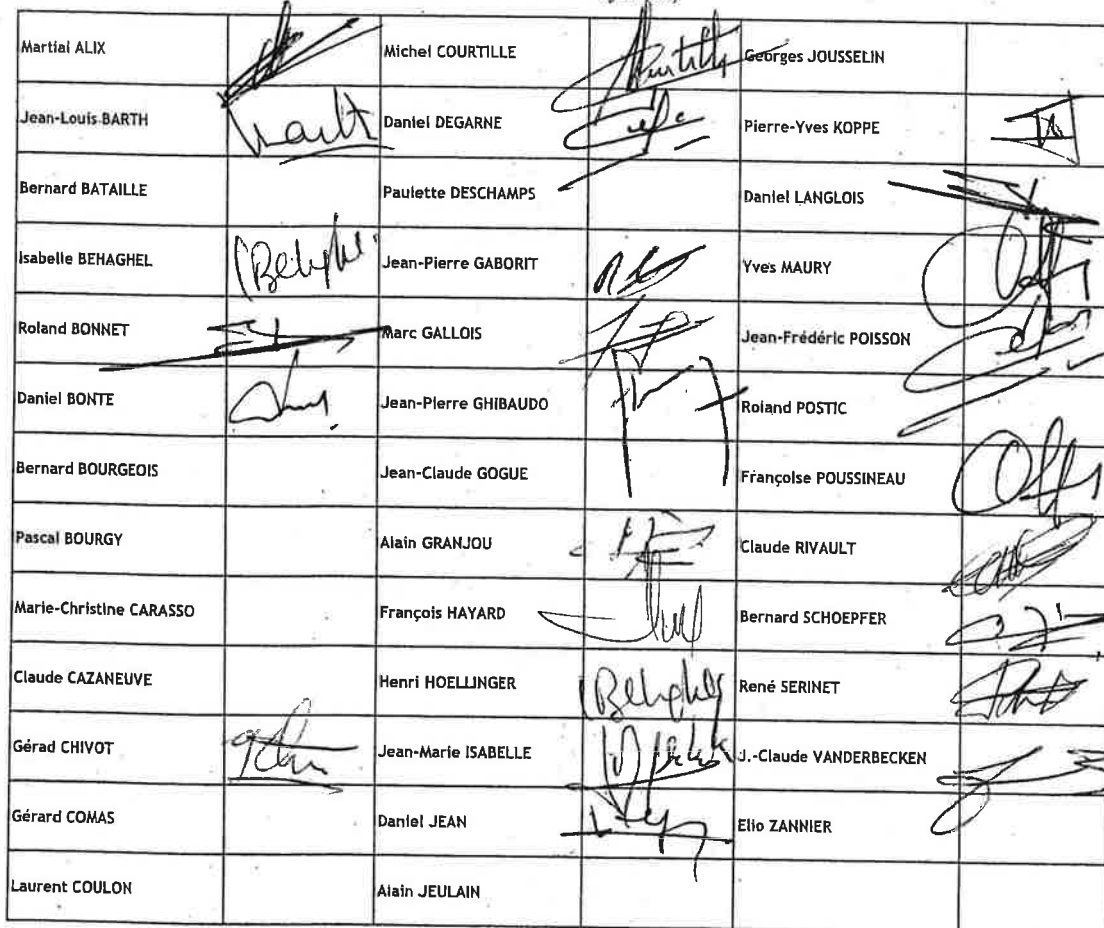 Martial ALIX Michel COURTILLE Georges JOUSSELIN
Jean-Louis BARTH Daniel DEGARNE Pierre-Yves KOPPE
Bernard BATAILLE Paulette DESCHAMPS Daniel LANGLOIS
Isabelle BEHAGHEL Jean-Pierre GABORIT Yves MAURY
Roland BONNET Marc GALLOIS Jean-Frédéric POISSON
Daniel BONTE Jean-Pierre GHIBAUDO Roland POSTIC
Bernard BOURGEOIS Jean-Claude GOGUE Françoise POUSSINEAU
Pascal BOURGY Alain GRANJOU Claude RIVAULT
Marie-Christine CARASSO François HAYARD Bernard SCHOEPFER
Claude CAZANEUVE Henri HOELLINGER René SERINET
Gérad CHIVOT Jean-Marie ISABELLE J.-Claude VANDERBECKEN
Gérard COMAS Daniel JEAN Elio ZANNIER
Laurent COULON Alain JEULAIN